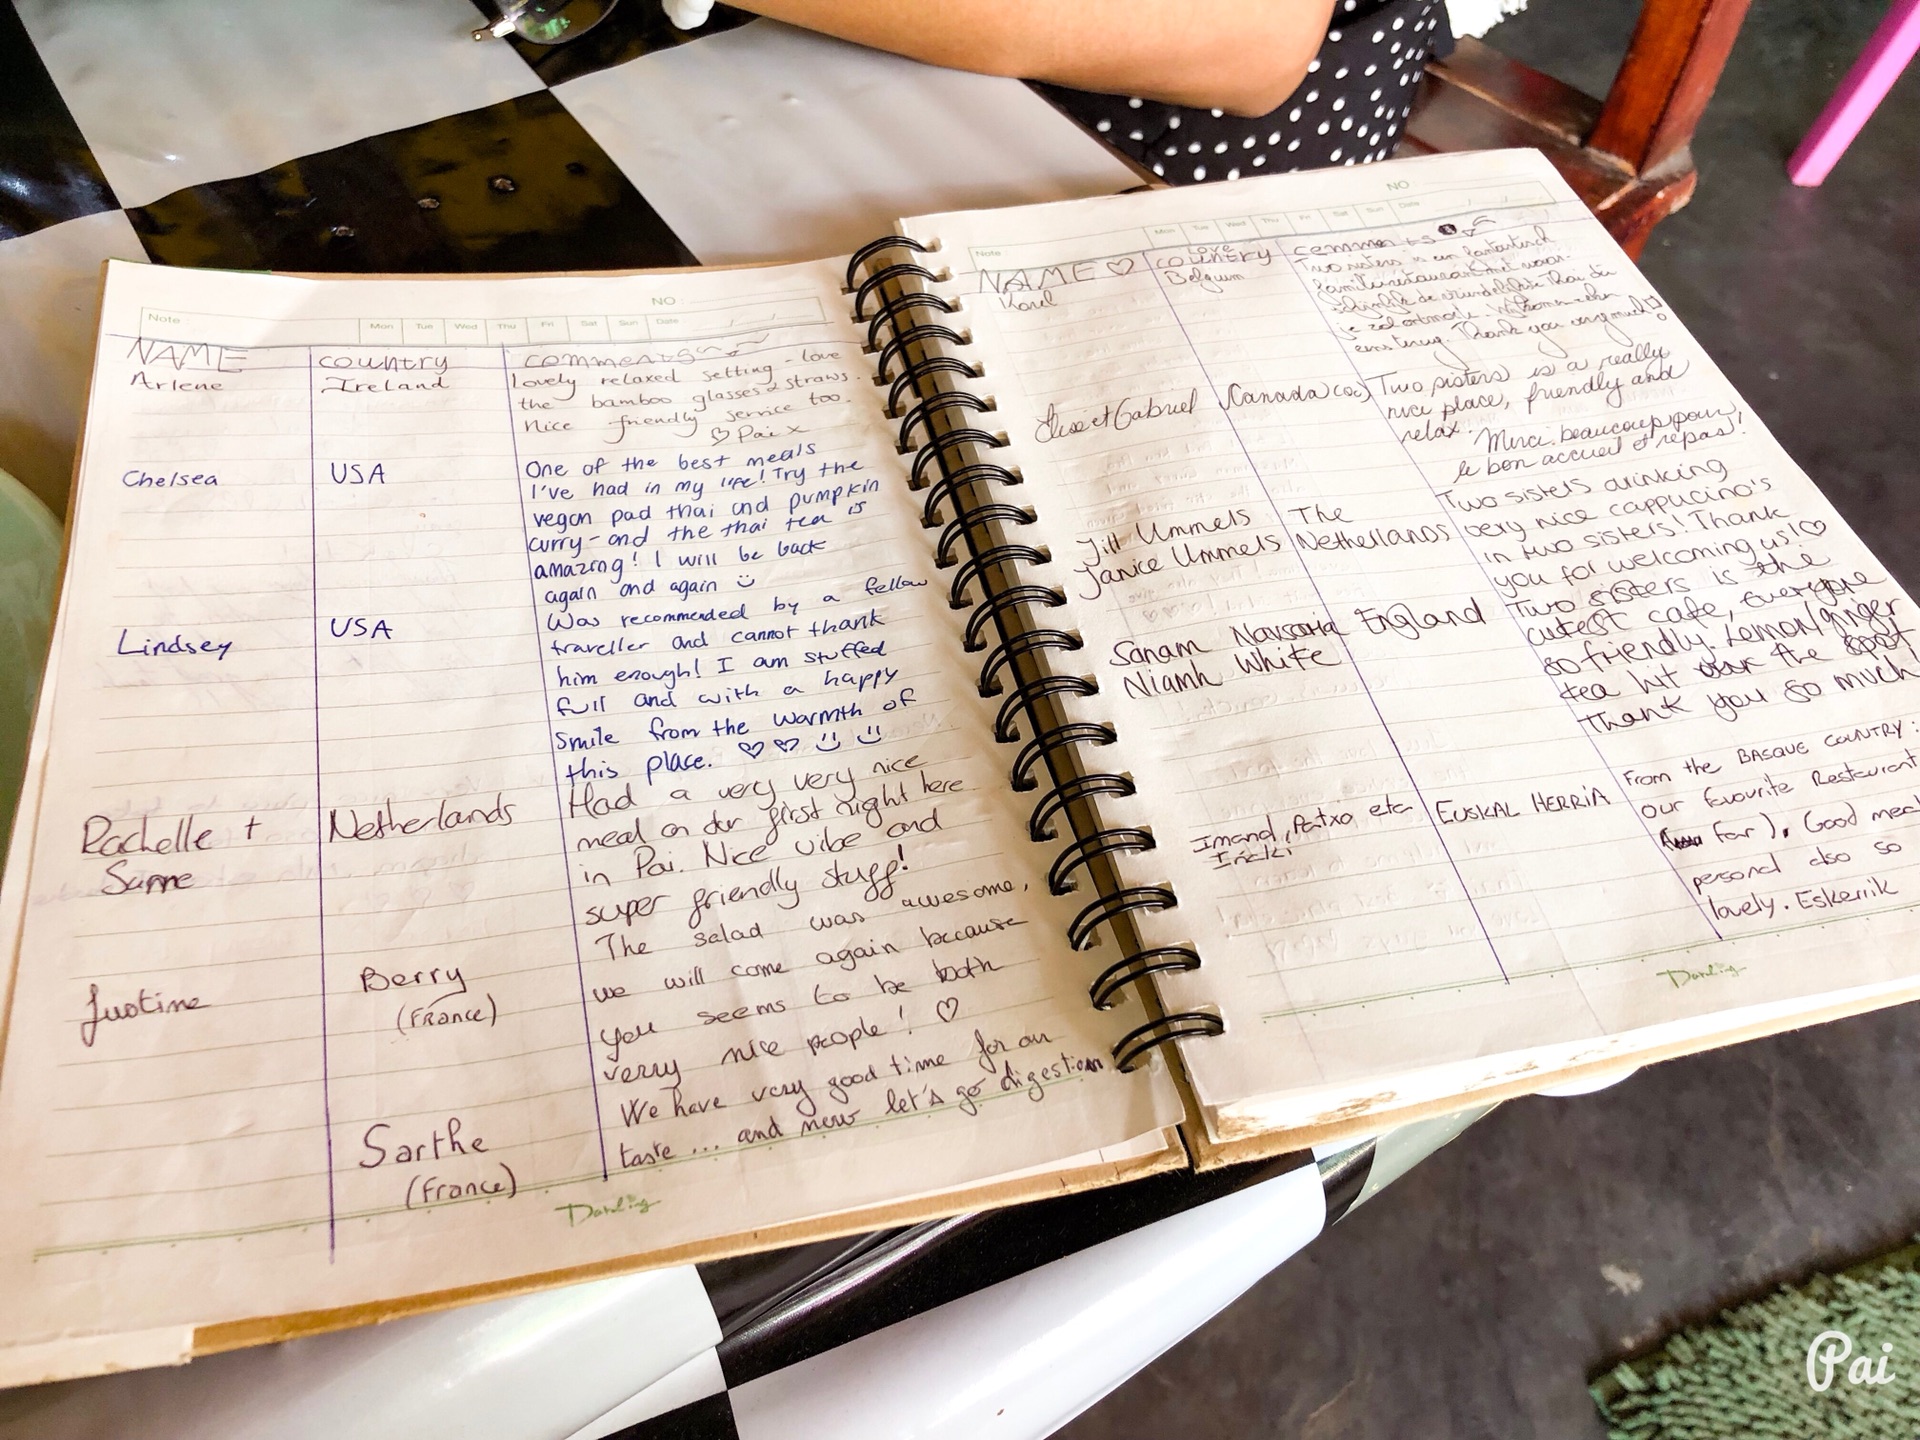 Note
NO:
Mon Tue Wed Thu Fri Sat Sun Date
NAME country comments
Arlene Ireland Lovely relaxed setting - love
the bamboo glasses & straws.
Nice friendly service too.
♡ Pai x
Chelsea USA One of the best meals
I've had in my life! Try the
vegan pad thai and pumpkin
curry - and the thai tea is
amazing! I will be back
again and again
Lindsey USA Was recommended by a fellow
traveller and cannot thank
him enough! I am stuffed
full and with a happy
smile from the warmth of
this place. ♡ ♡
Rachelle + Netherlands Had a very very nice
Sanne meal on our first night here
in Pai. Nice vibe and
super friendly stuff!
Justine Berry The salad was awesome,
(France) we will come again because
you seems to be both
verry nice people! ♡
Sarthe We have very good time for our
(France) taste ... and now let's go digestion
Darling
Note
NO
Mon Tue Wed Thu Fri Sat Sun Date
NAME ♡ love country comments
Karel Belgium Two sisters is een fantastisch
familierestaurant met
de vriendelijkste Thai die
je zal ontmoeten.
Thank you very much!
et Gabriel Canada Two sisters is a really
nice place, friendly and
relax. Merci beaucoup pour
le bon accueil et repas!
Jill Ummels The Two sisters drinking
Janice Ummels Netherlands very nice cappucino's
in two sisters! Thank
you for welcoming us! ♡
Sanam England Two sisters is the
Niamh White cutest cafe, everyone
so friendly. Lemon/ginger
tea hit the spot
Thank you so much
Imanol, Patxo etc EUSKAL HERRIA From the BASQUE COUNTRY:
our favourite Restaurant
far). Good meal
personal also so
lovely. Eskerrik
Darling
Pai